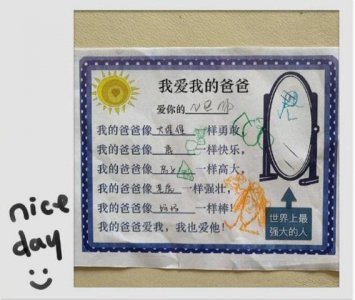 我爱我的爸爸
爱你的
我的爸爸像 一样勇敢,
我的爸爸像 一样快乐,
我的爸爸像 一样高大,
我的爸爸像 一样强壮,
我的爸爸像 一样棒!
我的爸爸爱我,我也爱他!
世界上最
强大的人
nice
day